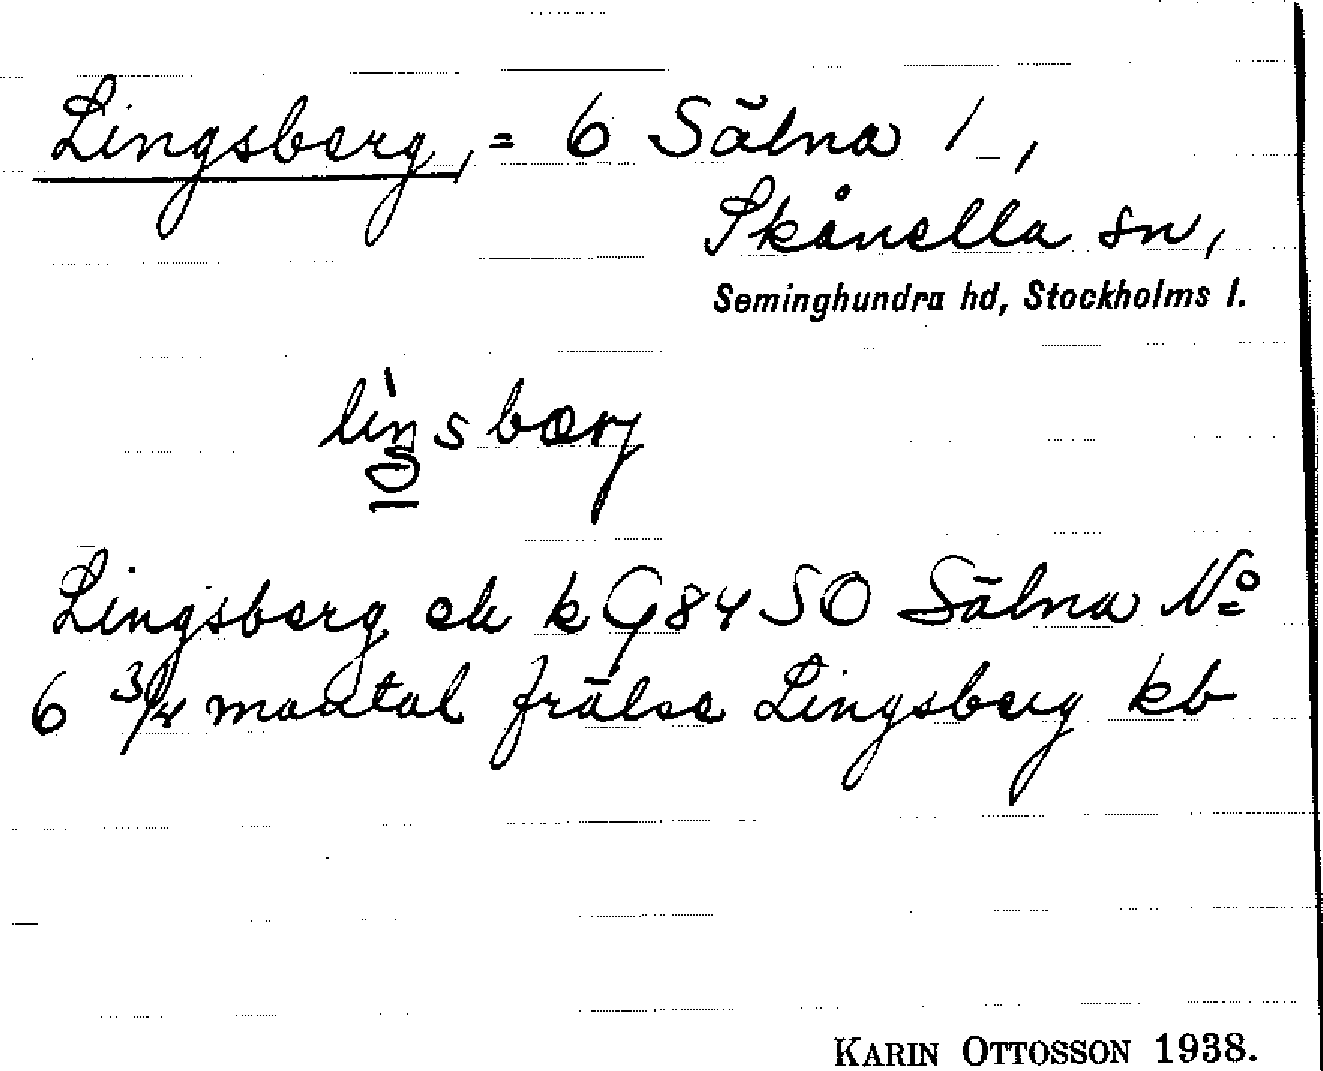 Lingsberg, = 6 Sälna 1,
Skånella sn,
Seminghundra hd, Stockholms l.
lińsbærj
Lingsberg ek k G84 SO Sälna No
6 3/4 mantal frälse Lingsberg kb
KARIN OTTOSSON 1938.